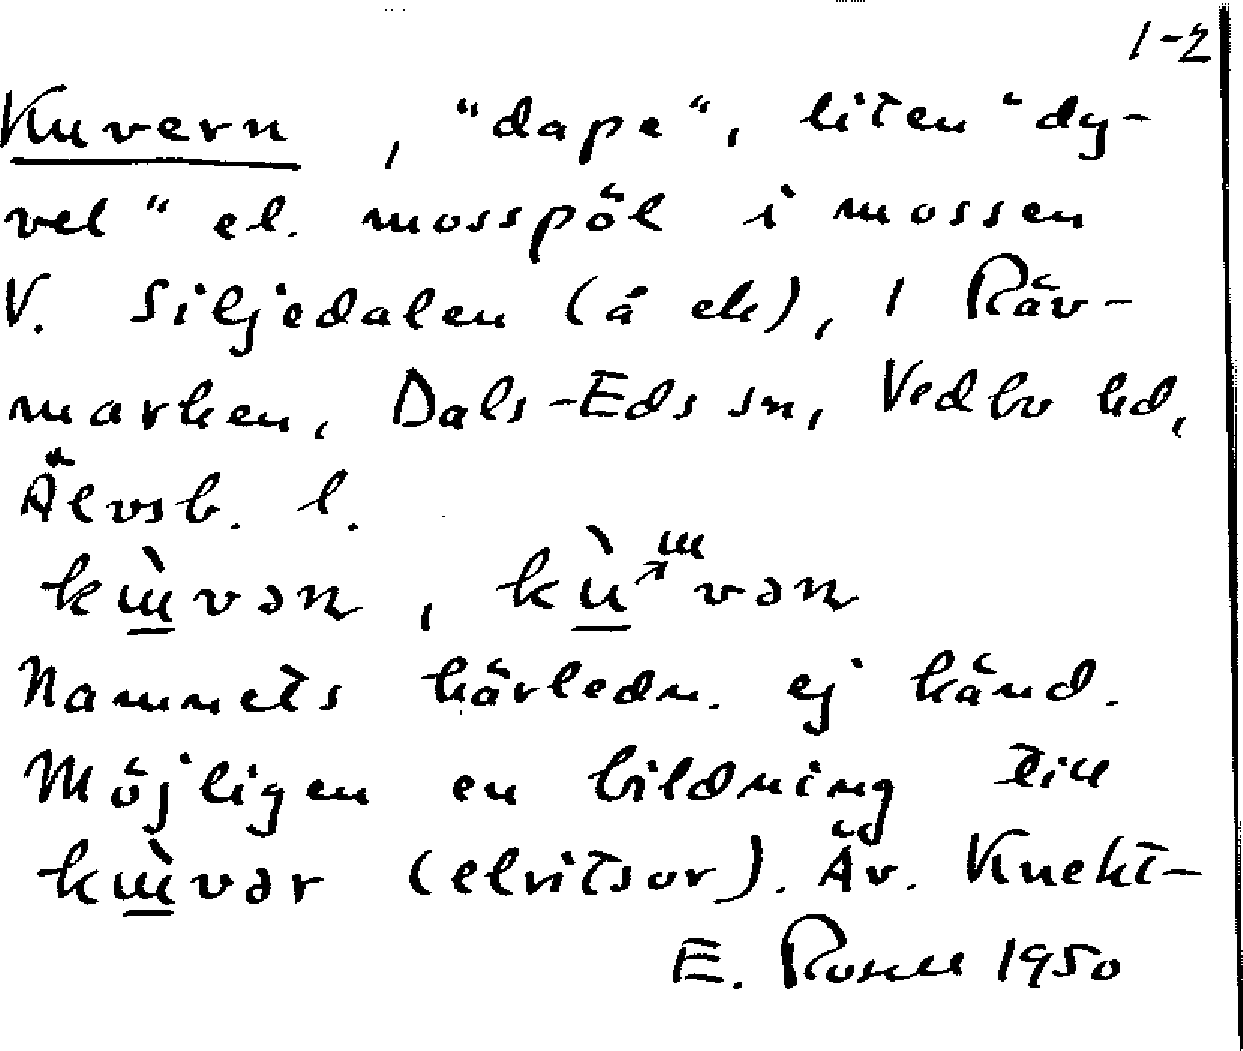 1-2
Kuvern, "dape", liten "dy-
vel" el. mosspöl i mossen
V. Siljedalen (å ek), 1 Räv-
marken, Dals-Eds sn, Vedbo hd,
Älvsb. l.
kɯ̀vən, kùɯvən
Namnets härledn. ej känd.
Möjligen en bildning till
kɯ̀vər (elritsor). Äv. Knekt-
E. Rosell 1950